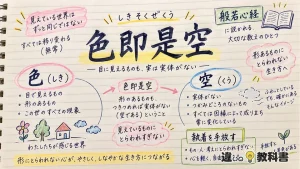 見えている世界は
ずっと同じではない
すべては移り変わる
(無常)
しきそくぜくう
色即是空
般若心経
に説かれる
大切な教えのひとつ
目に見えるものも、実は実体がない
形あるものに
とらわれない
生き方へ
色(しき)
・目で見えるもの
・形のあるもの
・この世のすべての現象
わたしたちが感じる世界
色即是空
形のあるものも
つきつめれば実体がない
(空である)ということ
見えているものに
とらわれすぎない
空(くう)
・実体がない
・つかみどころのないもの
・すべては因縁によって成り立ち
常に変化している
執着を手放す
形にとらわれない心が、やさしく、しなやかな生き方につながる
教科書